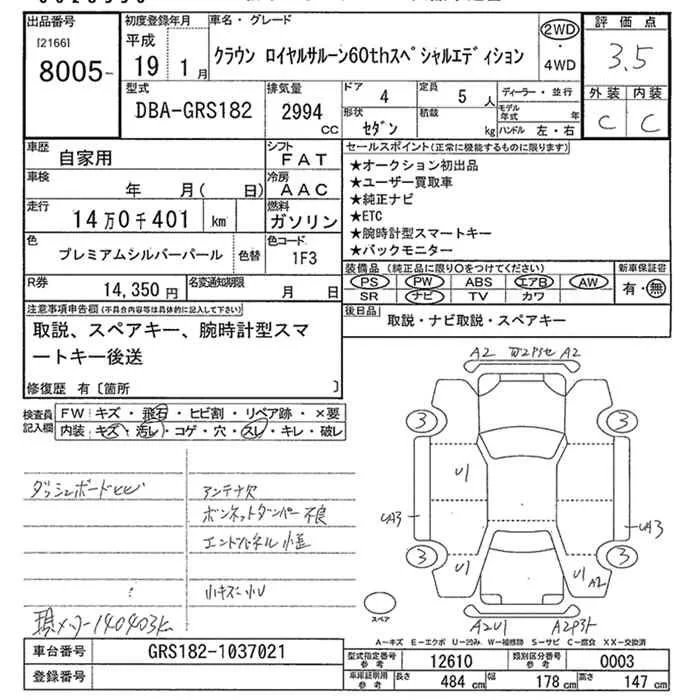 出品番号
[2166]
8005
初度登録年月
平成
19 1月
車名・グレード
クラウン ロイヤルサルーン60thスペシャルエディション
2WD
・
4WD
評価点
3.5
外装 内装
C C
型式
DBA-GRS182
排気量
2994
CC
ドア
4
定員
5 人
形状
セダン
積載
kg
ディーラー・並行
モデル年式 年
ハンドル 左・右
車歴
自家用
シフト
FAT
車検
年 月( 日)
冷房
AAC
走行
14万0千401 km
燃料
ガソリン
色
プレミアムシルバーパール
色替
色コード
1F3
R券
14,350 円
名変通知期限
月 日
セールスポイント(正常に機能するものに限ります)
★オークション初出品
★ユーザー買取車
★純正ナビ
★ETC
★腕時計型スマートキー
★バックモニター
装備品(純正品に限り○をつけてください)
新車保証書
PS PW ABS エアB AW
SR ナビ TV カワ
有・無
後日品
取説・ナビ取説・スペアキー
注意事項申告欄(不具合内容等は具体的に記入して下さい)
取説、スペアキー、腕時計型スマ
ートキー後送
修復歴 有〔箇所 〕
検査員
記入欄
FW キズ・飛石・ヒビ割・リペア跡・×要
内装 キズ・汚レ・コゲ・穴・スレ・キレ・破レ
ダッシュボードヒビ
アンテナ欠
ボンネットダンパー不良
エンドパネル小歪
小キズ小U
現メーター140403k
A2 W2 A2
3 3
U1
UA3 UA3
3 3
U1 U1 A2
スペア
A2U1
A-キズ E-エクボ U-凹み W-補修跡 S-サビ C-腐食 XX-交換済
車台番号
GRS182-1037021
登録番号
型式指定番号
参考
12610
類別区分番号
参考
0003
車庫証明用
参考
長さ
484 cm
幅
178 cm
高さ
147 cm